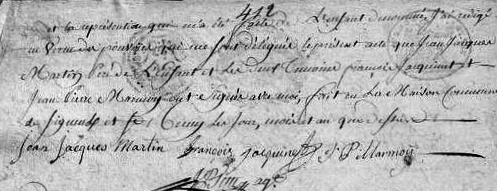 412
et la représentation qui m'a été faite de L'enfant denommé, j'ai rédigé
en vertu des pouvoirs qui me sont délégués le présent acte que Jean Jacques
Martin père de L'enfant et les deux temoins françois jacquinet et
Jean Pierre Marmoy ont signé avec moi, fait en La Maison Commune
de et Cerny les jour, mois et an que dessus
Jean Jacques Martin François Jacquinet J. P. Marmoy